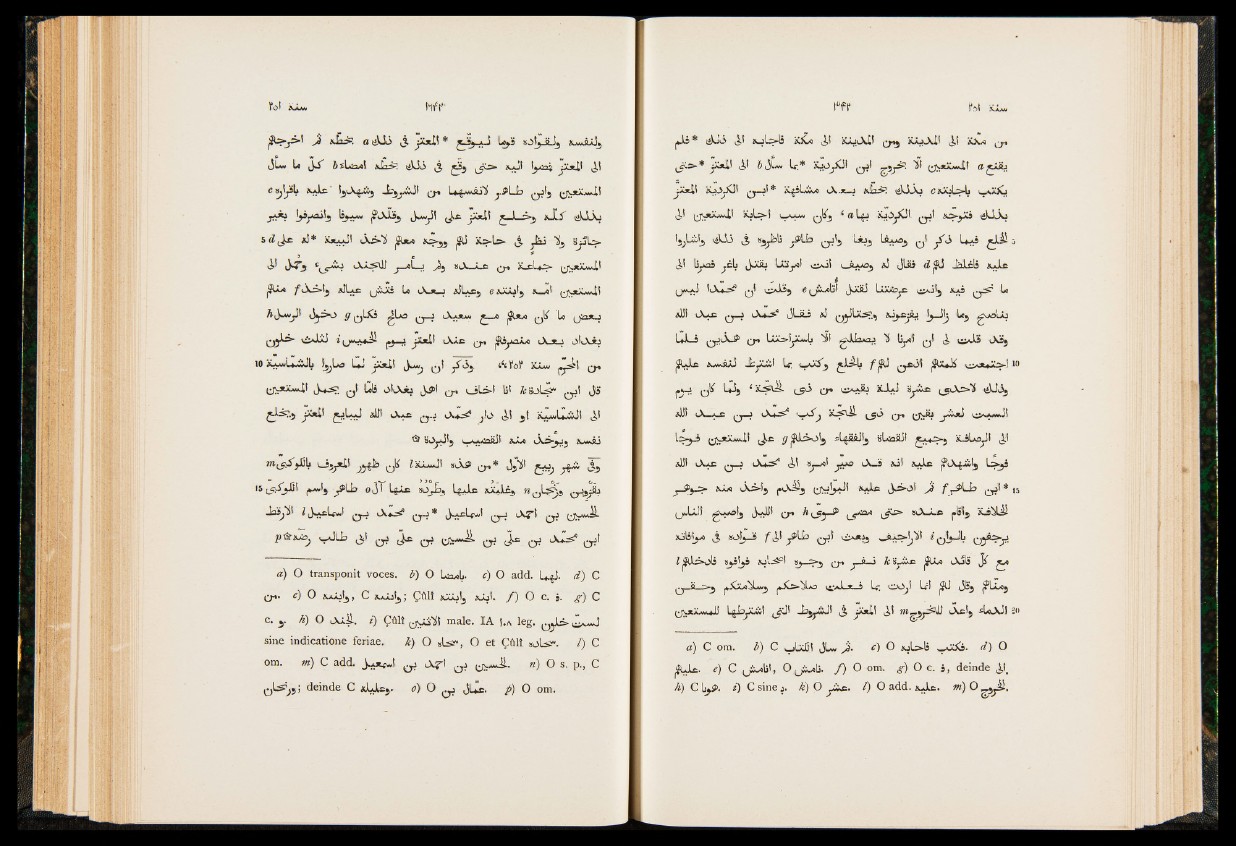 سنة ٢٥١ ١٦٤٢
من مكّة الى المدينة ومن المدينة الى مكّة فاجابه الى ذلك * فلم
يقنع a المستعين الّا بخروج ابن الكرديّة *بما سأل b الى المعتزّ *حتى
يكتب باجابته c بذلك بخطّه بعد مشافهة *ابن الكرديّة المعتزّ
بذلك فتوجّه ابن الكرديّة بها a ، وكان سبب اجابة المستعين الى
5 الخلع فيما ذكر ان وصيفا وبغا وابن طاهر ناظروه فى ذلك واشاروا
عليه فاغلظ لهم d فقال له وصيف انت امرتنا بقتل باغر فصرنا الى
ما نحن فيه وانت عرّضتنا لقتل أُوتامش e وقلتَ ان محمّدا ليس
بناصح وما زالوا يفزعونه ويحتالون له فقال محمّد بن عبد الله
وقد قلت لى ان امرنا لا يصطلح الّا باستراحتنا من هذين فلمّا
10 اجتمعت كلمتهم اذعن لهم f بالخلع وكتب بما اشترط لنفسه عليهم
وذلك لاحدى عشرة ليلة بقيت من ذى الحجّة ، ولمّا كان يوم
السبت لعشر بقين من ذى الحجّة ركب محمّد بن عبد الله
الى الرصافة وجميع القضاة والفقهاء وادخلهم g على المستعين فوجا
فوجا واشهدهم عليه انه قد صيّر امره الى محمّد بن عبد الله
15 *ابن طاهر f ثم ادخل عليه البوّابين والخدم واخذ منه جوهر
الخلافة واقام عنده حتى مضى هوىّ h من الليل واصبح الناس
يرجفون بالوان i الاراجيف وبعث ابن طاهر الى f قوّاده فى موافاته
مع كلّ قائد منهم عشرة k نفر من وجوه اصحابه فوافوه فادخلهم l
ومنّاهم وقال لهم انما اردت بما فعلت صلاحكم وسلامتكم وحقن
20 الدماء واعدّ للخروج m الى المعتزّ فى الشروط التى اشترطها للمستعين
a) C om. b) C . c) O فكتب فاجابه. d) O
عليهم. e) C , O . f) O om. g) O c. ف, deinde الى.
h) C هونا. i) C sine ب. k) O عشر. l) O add. عليه. m) O الخروج.
١٦٤٣ سنة ٢٥١
ولنفسه ولقوّاده قوما ليوقّع *المعتزّ فى ذلك a بخطّه ثم اخرجهم
الى المعتزّ فمضوا اليه حتى وقّع فى ذلك بخطّه امضاء b كلّ ما سأل
المستعين وابن طاهر لانفسهما من الشروط وشهدوا عليه باقراره c
بذلك كلّه وخلع المعتزّ على الرسل وقلّدهم سيوفا وانصرفوا بغير
5 جائزة ولا نظر فى حاجة لهم ووجّه معهم لاخذ البيعة *له على d
المستعين جماعة من عنده ولم يأمر للجند بشىء ، وحُمل الى
المستعين امّه وابنته e وعياله بعد ما فتّش عياله واخذ f منهم
بعض ما كان معهم مع سعيد بن صالح فكان g دخول الرسل h
بغداد بعد منصرفهم من عند المعتزّ يوم الخميس i لثلث خلون
10 من المحرّم سنة ٢٥٢ ، وذكر ان رسل المعتزّ لمّا صاروا بالشمّاسيّة
قال ابن سجادة k انا اخاف من اهل بغداد فامّا ان يحمل المستعين
الى الشمّاسيّة او الى دار محمّد بن عبد الله ليبايع المعتزّ ويخلع
نفسه ويؤخذ منه القضيب والبردة
وفى شهر ربيع الاوّل *من هذه السنة l كان ظهور المعروف بالكوكبىّ m
15 بقزوين وزَنْجان n وغلبته عليها وطَرْده عنها آل o طاهر واسم الكوكبىّ
الحسين بن احمد بن اسماعيل *بن محمّد بن اسماعيل l الارقط
ابن محمّد بن علىّ بن الحسين بن علىّ بن ابى طالب رضّه p
a) O transponit voces. b) O بامضا. c) O add. لهما. d) C
من. e) O وابنيه, C وابنته; Çûlî . f) O c. ف. g) C
c. و. h) O الجند. i) Çûlî الاثنين male. IA ١٠٨ leg. لست خلون
sine indicatione feriae. k) O , O et Çûlî . l) C
om. m) C add. الحسين بن احمد بن اسمعيل. n) O s. p., C
ورنجان; deinde C وعليله. o) O عمّال بن. p) O om.